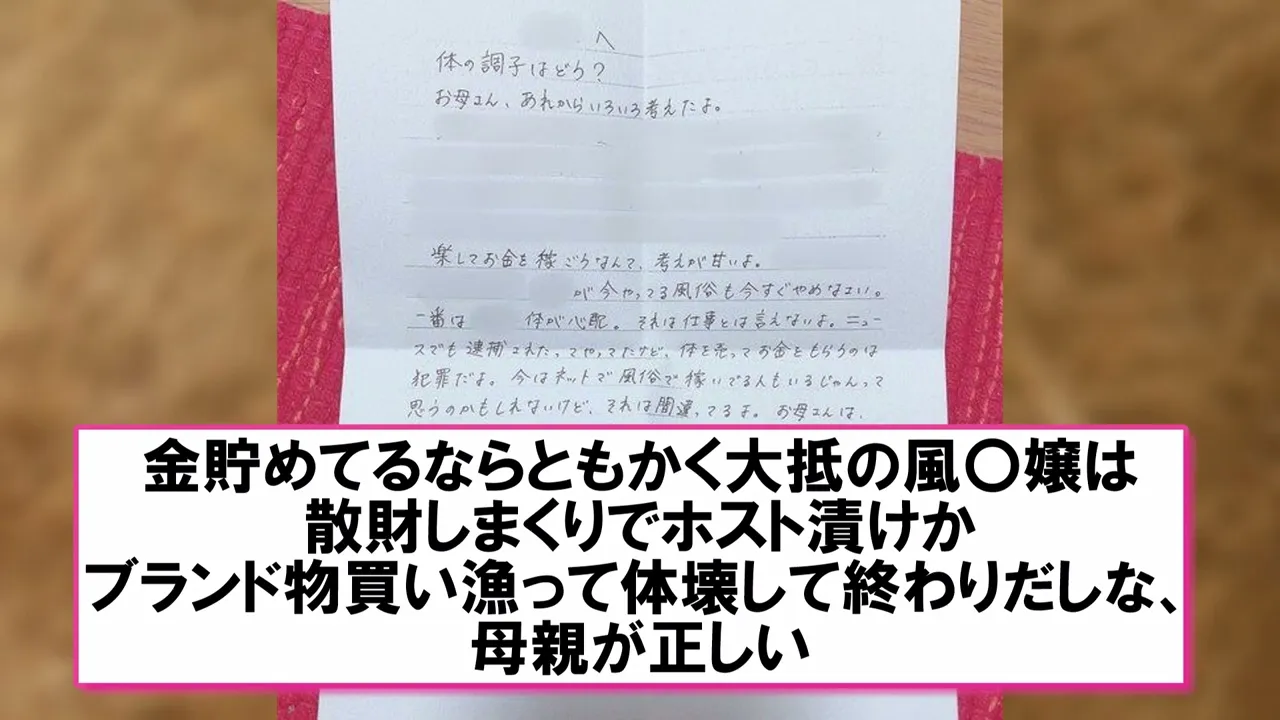 へ
体の調子はどう?
お母さん、あれからいろいろ考えたよ。
楽してお金を稼ごうなんて、考えが甘いよ。
が今やってる風俗も今すぐやめなさい。
一番は 体が心配。それは仕事とは言えないよ。ニュー
スでも逮捕されたってやってたけど、体を売ってお金をもらうのは
犯罪だよ。今はネットで風俗で稼いでる人もいるじゃんって
思うのかもしれないけど、それは間違ってるよ。お母さんは、
金貯めてるならともかく大抵の風〇嬢は
散財しまくりでホスト漬けか
ブランド物買い漁って体壊して終わりだしな、
母親が正しい